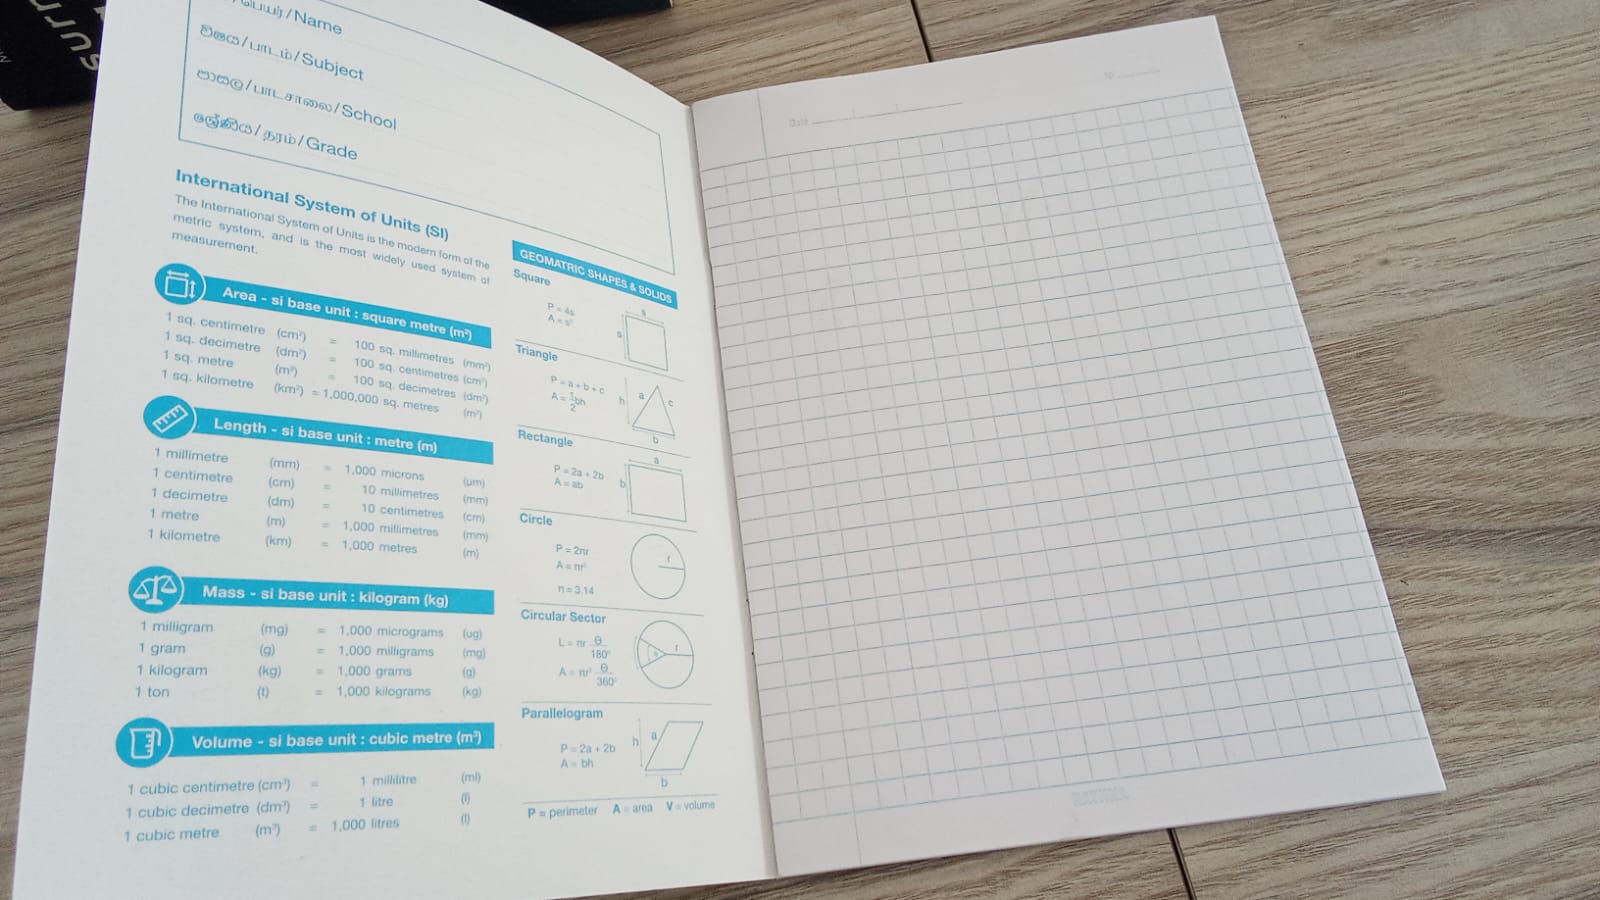 /பெயர்/Name
විෂය/பாடம்/Subject
පාසල/பாடசாலை/School
ශ්‍රේණිය/தரம்/Grade
International System of Units (SI)
The International System of Units is the modern form of the
metric system, and is the most widely used system of
measurement.
Area - si base unit : square metre (m²)
1 sq. centimetre (cm²) = 100 sq. millimetres (mm²)
1 sq. decimetre (dm²) = 100 sq. centimetres (cm²)
1 sq. metre (m²) = 100 sq. decimetres (dm²)
1 sq. kilometre (km²) = 1,000,000 sq. metres (m²)
Length - si base unit : metre (m)
1 millimetre (mm) = 1,000 microns (µm)
1 centimetre (cm) = 10 millimetres (mm)
1 decimetre (dm) = 10 centimetres (cm)
1 metre (m) = 1,000 millimetres (mm)
1 kilometre (km) = 1,000 metres (m)
Mass - si base unit : kilogram (kg)
1 milligram (mg) = 1,000 micrograms (ug)
1 gram (g) = 1,000 milligrams (mg)
1 kilogram (kg) = 1,000 grams (g)
1 ton (t) = 1,000 kilograms (kg)
Volume - si base unit : cubic metre (m³)
1 cubic centimetre (cm³) = 1 millilitre (ml)
1 cubic decimetre (dm³) = 1 litre (l)
1 cubic metre (m³) = 1,000 litres (l)
GEOMATRIC SHAPES & SOLIDS
Square
P = 4s
A = s²
s
s
Triangle
P = a + b + c
A = 1/2 bh
h a c
b
Rectangle
P = 2a + 2b
A = ab
a
b
Circle
P = 2πr
A = πr²
π = 3.14
r
Circular Sector
L = πr θ/180°
A = πr² θ/360°
r
Parallelogram
P = 2a + 2b
A = bh
h a
b
P = perimeter A = area V = volume
Date